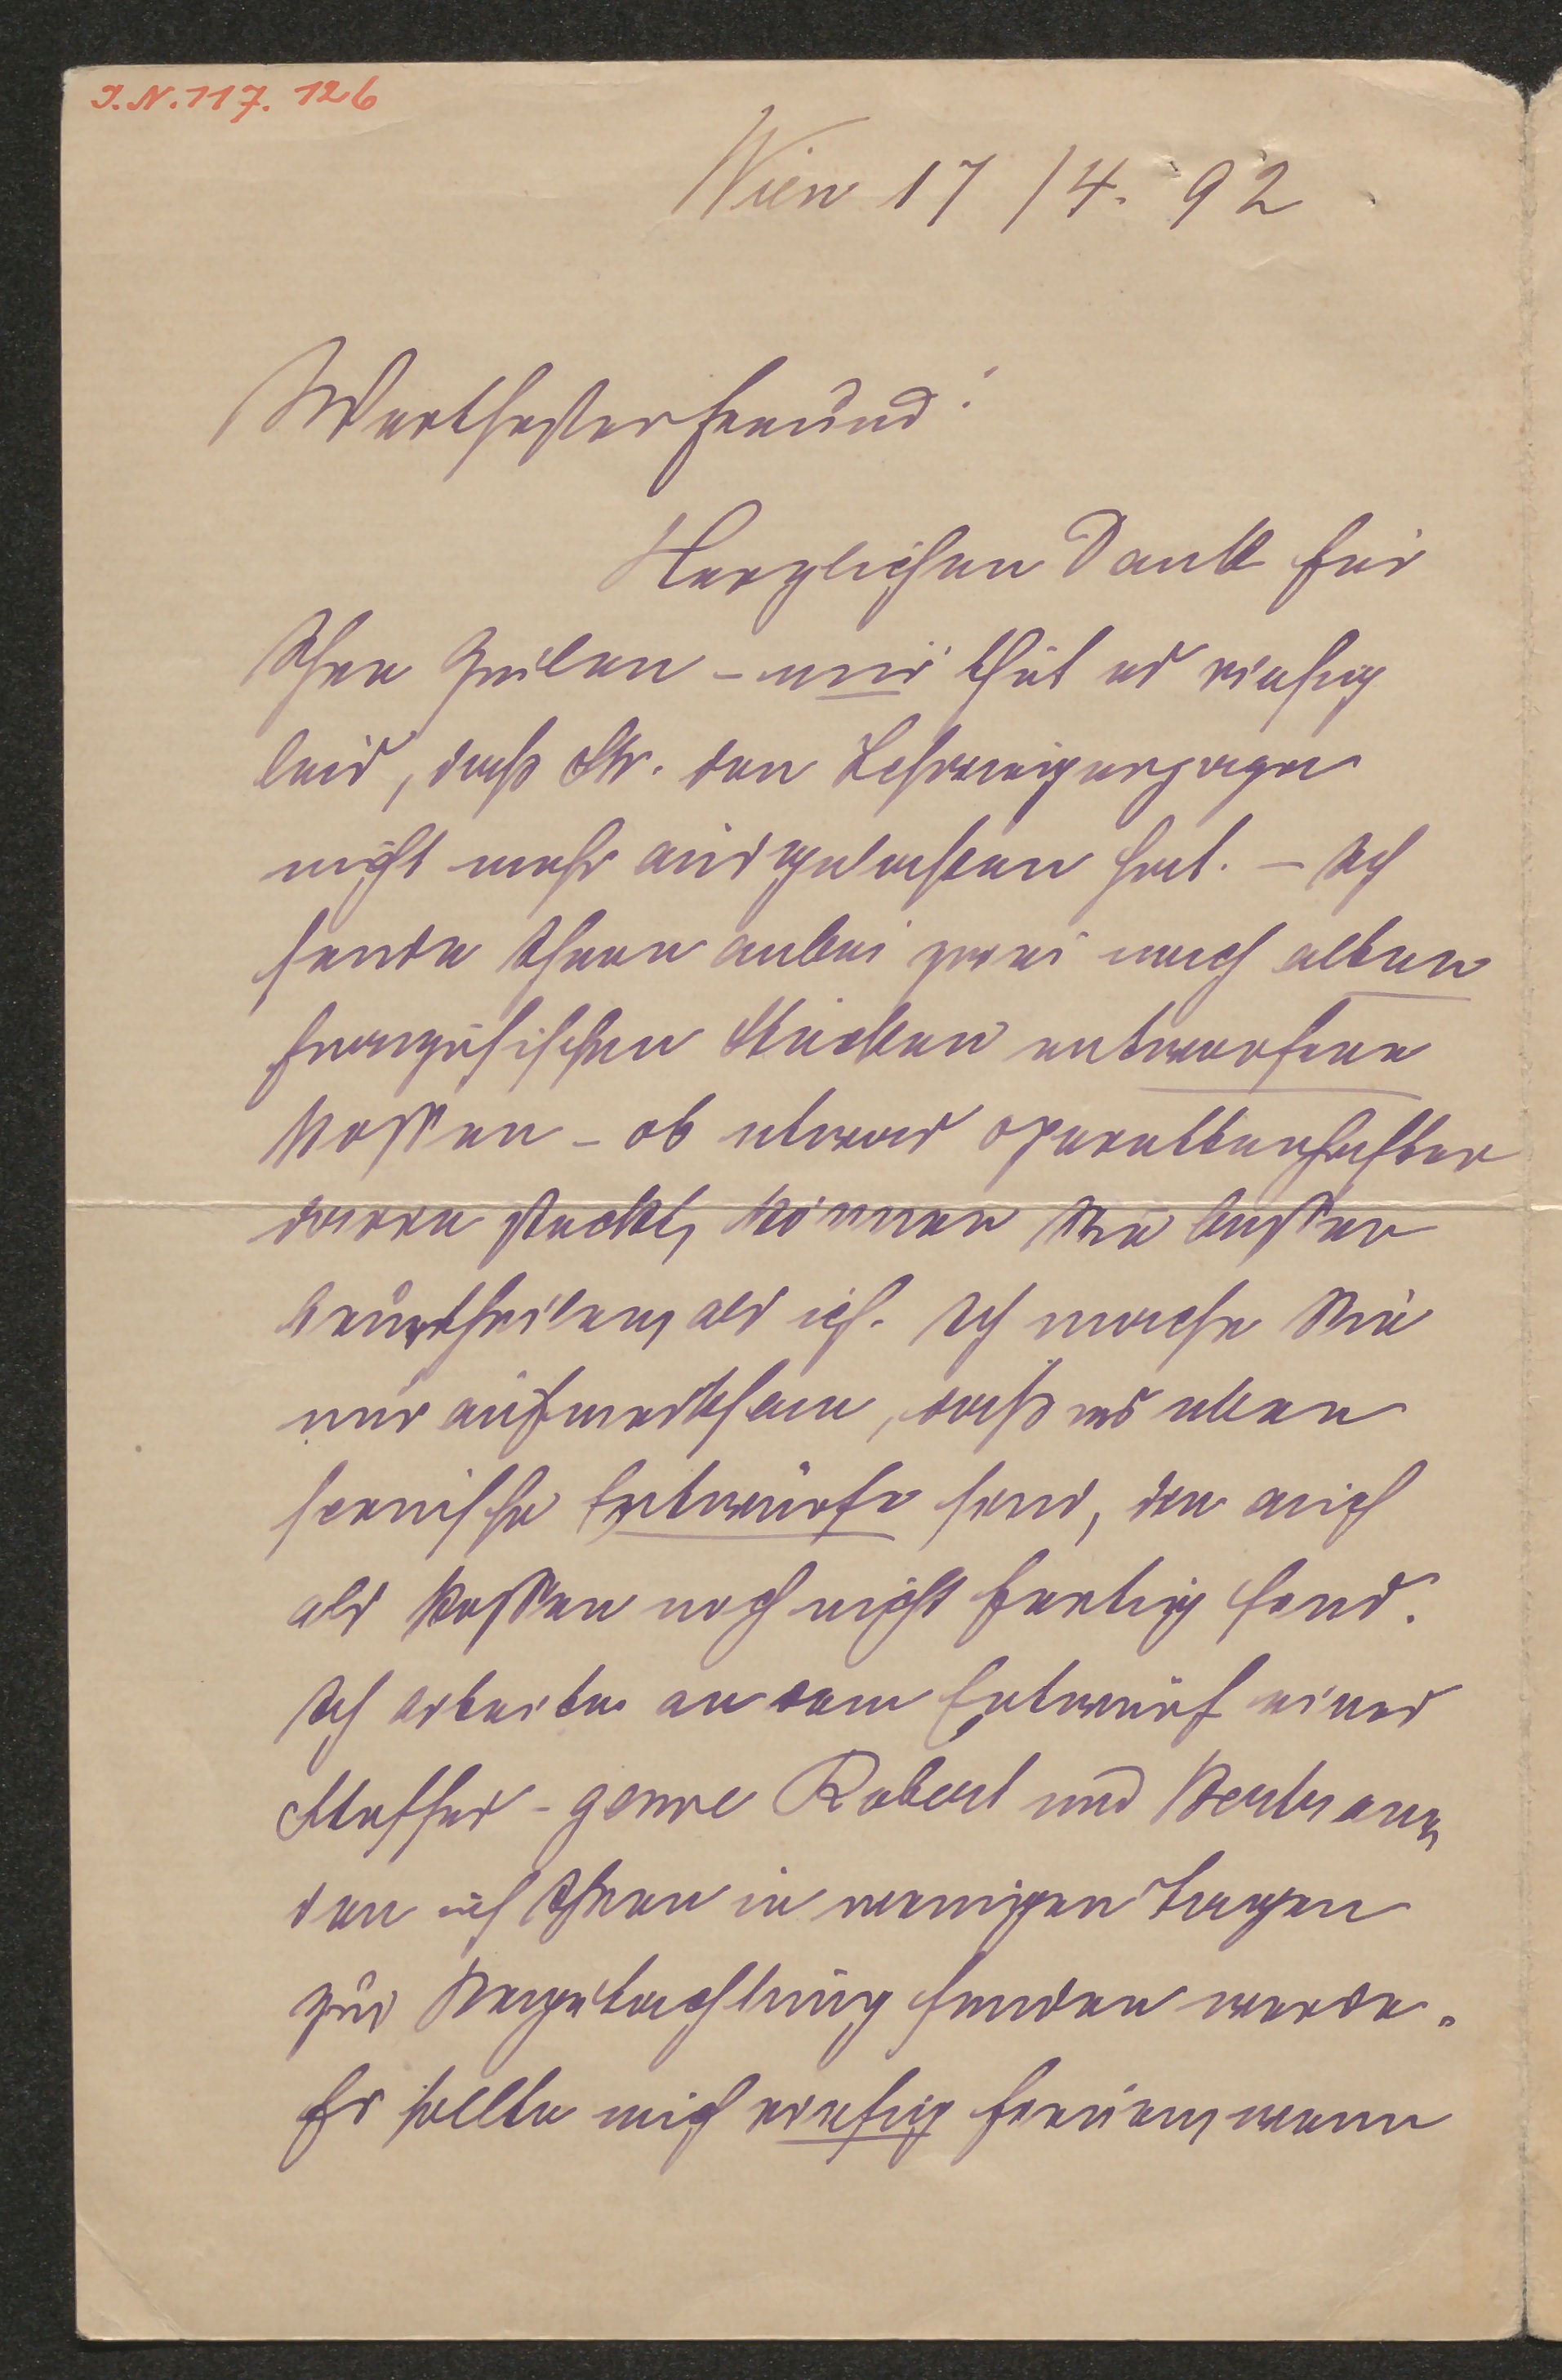 I.N.117.126
Wien 17/4. 92
Werthester Freund!
Herzlichen Dank für
Ihre Zeilen – mir thut es riesig
leid, daß Str. den
nicht mehr ausgelassen hat. – Ich
sende Ihnen anbei zwei nach alten
französischen Stücken entworfene
Possen – ob etwas operettenhaftes
darin steckt, können Sie besser
beurtheilen, als ich. Ich mache Sie
nur aufmerksam, daß es eben
scenische Entwürfe sind, die auch
als Possen noch nicht fertig sind.
Ich arbeite an dem Entwurf eines
Stoffes – genre Robert und Bertram,
den ich Ihnen in wenigen Tagen
zur Begutachtung senden werde.
Es sollte mich riesig freuen, wenn